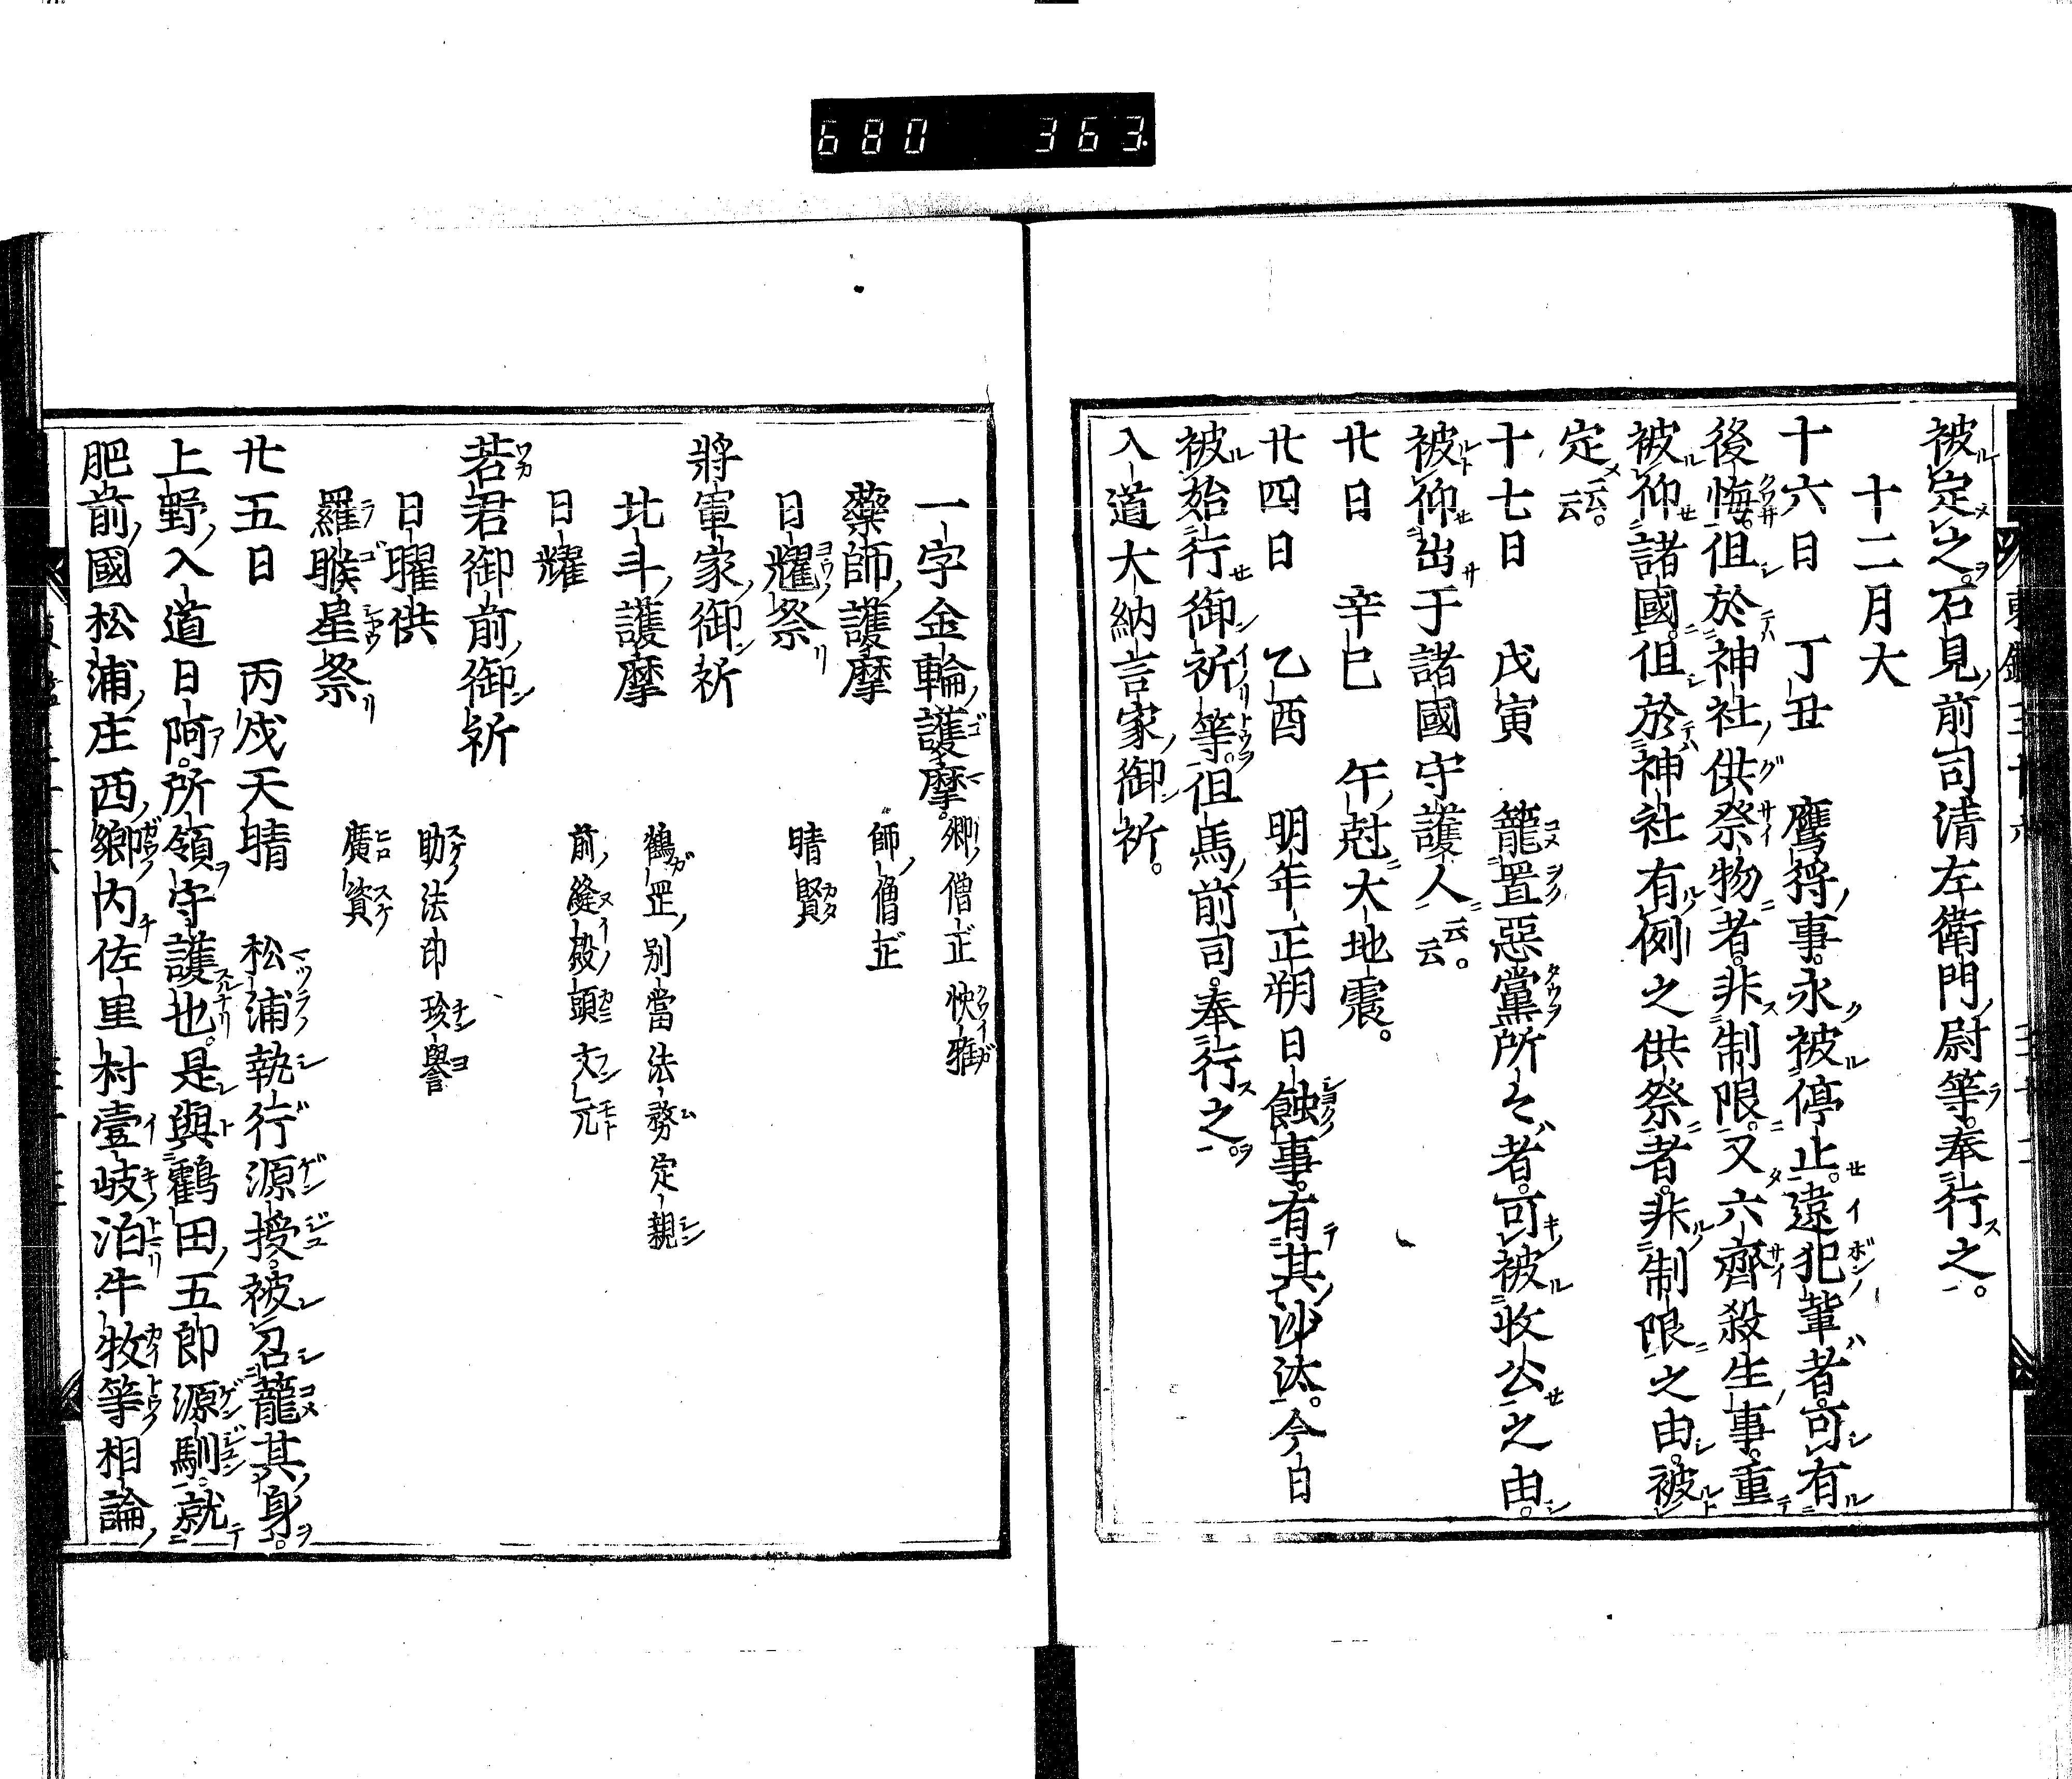 680 363
被定之。石見前司清左衛門尉等。奉行之。
十二月大
十六日 丁丑 鷹狩事。永被停止。違犯輩者。可有
後悔。但於神社供祭物者。非制限。又六齊殺生事。重
被仰諸國。但於神社有例之供祭者。非制限之由。被
定云云。
十七日 戊寅 籠置惡黨所々者。可被收公之由。
被仰出于諸國守護人云云。
廿日 辛巳 午尅大地震。
廿四日 乙酉 明年正朔日蝕事。有其沙汰。今日
被始行御祈等。但馬前司。奉行之。
入道大納言家御祈。
一字金輪護摩。 卿僧正快雅
藥師護摩 師僧正
日曜祭 晴賢
將軍家御祈
北斗護摩 鶴罡別當法務定親
日曜 前縫殿頭文元
若君御前御祈
日曜供 助法印珍譽
羅睺星祭 廣資
廿五日 丙戌天晴 松浦執行源授。被召籠其身。
上野入道日阿。所領守護也。是與鸖田五郎源馴。就
肥前國松浦庄西鄉內佐里村壹岐泊牛牧等相論